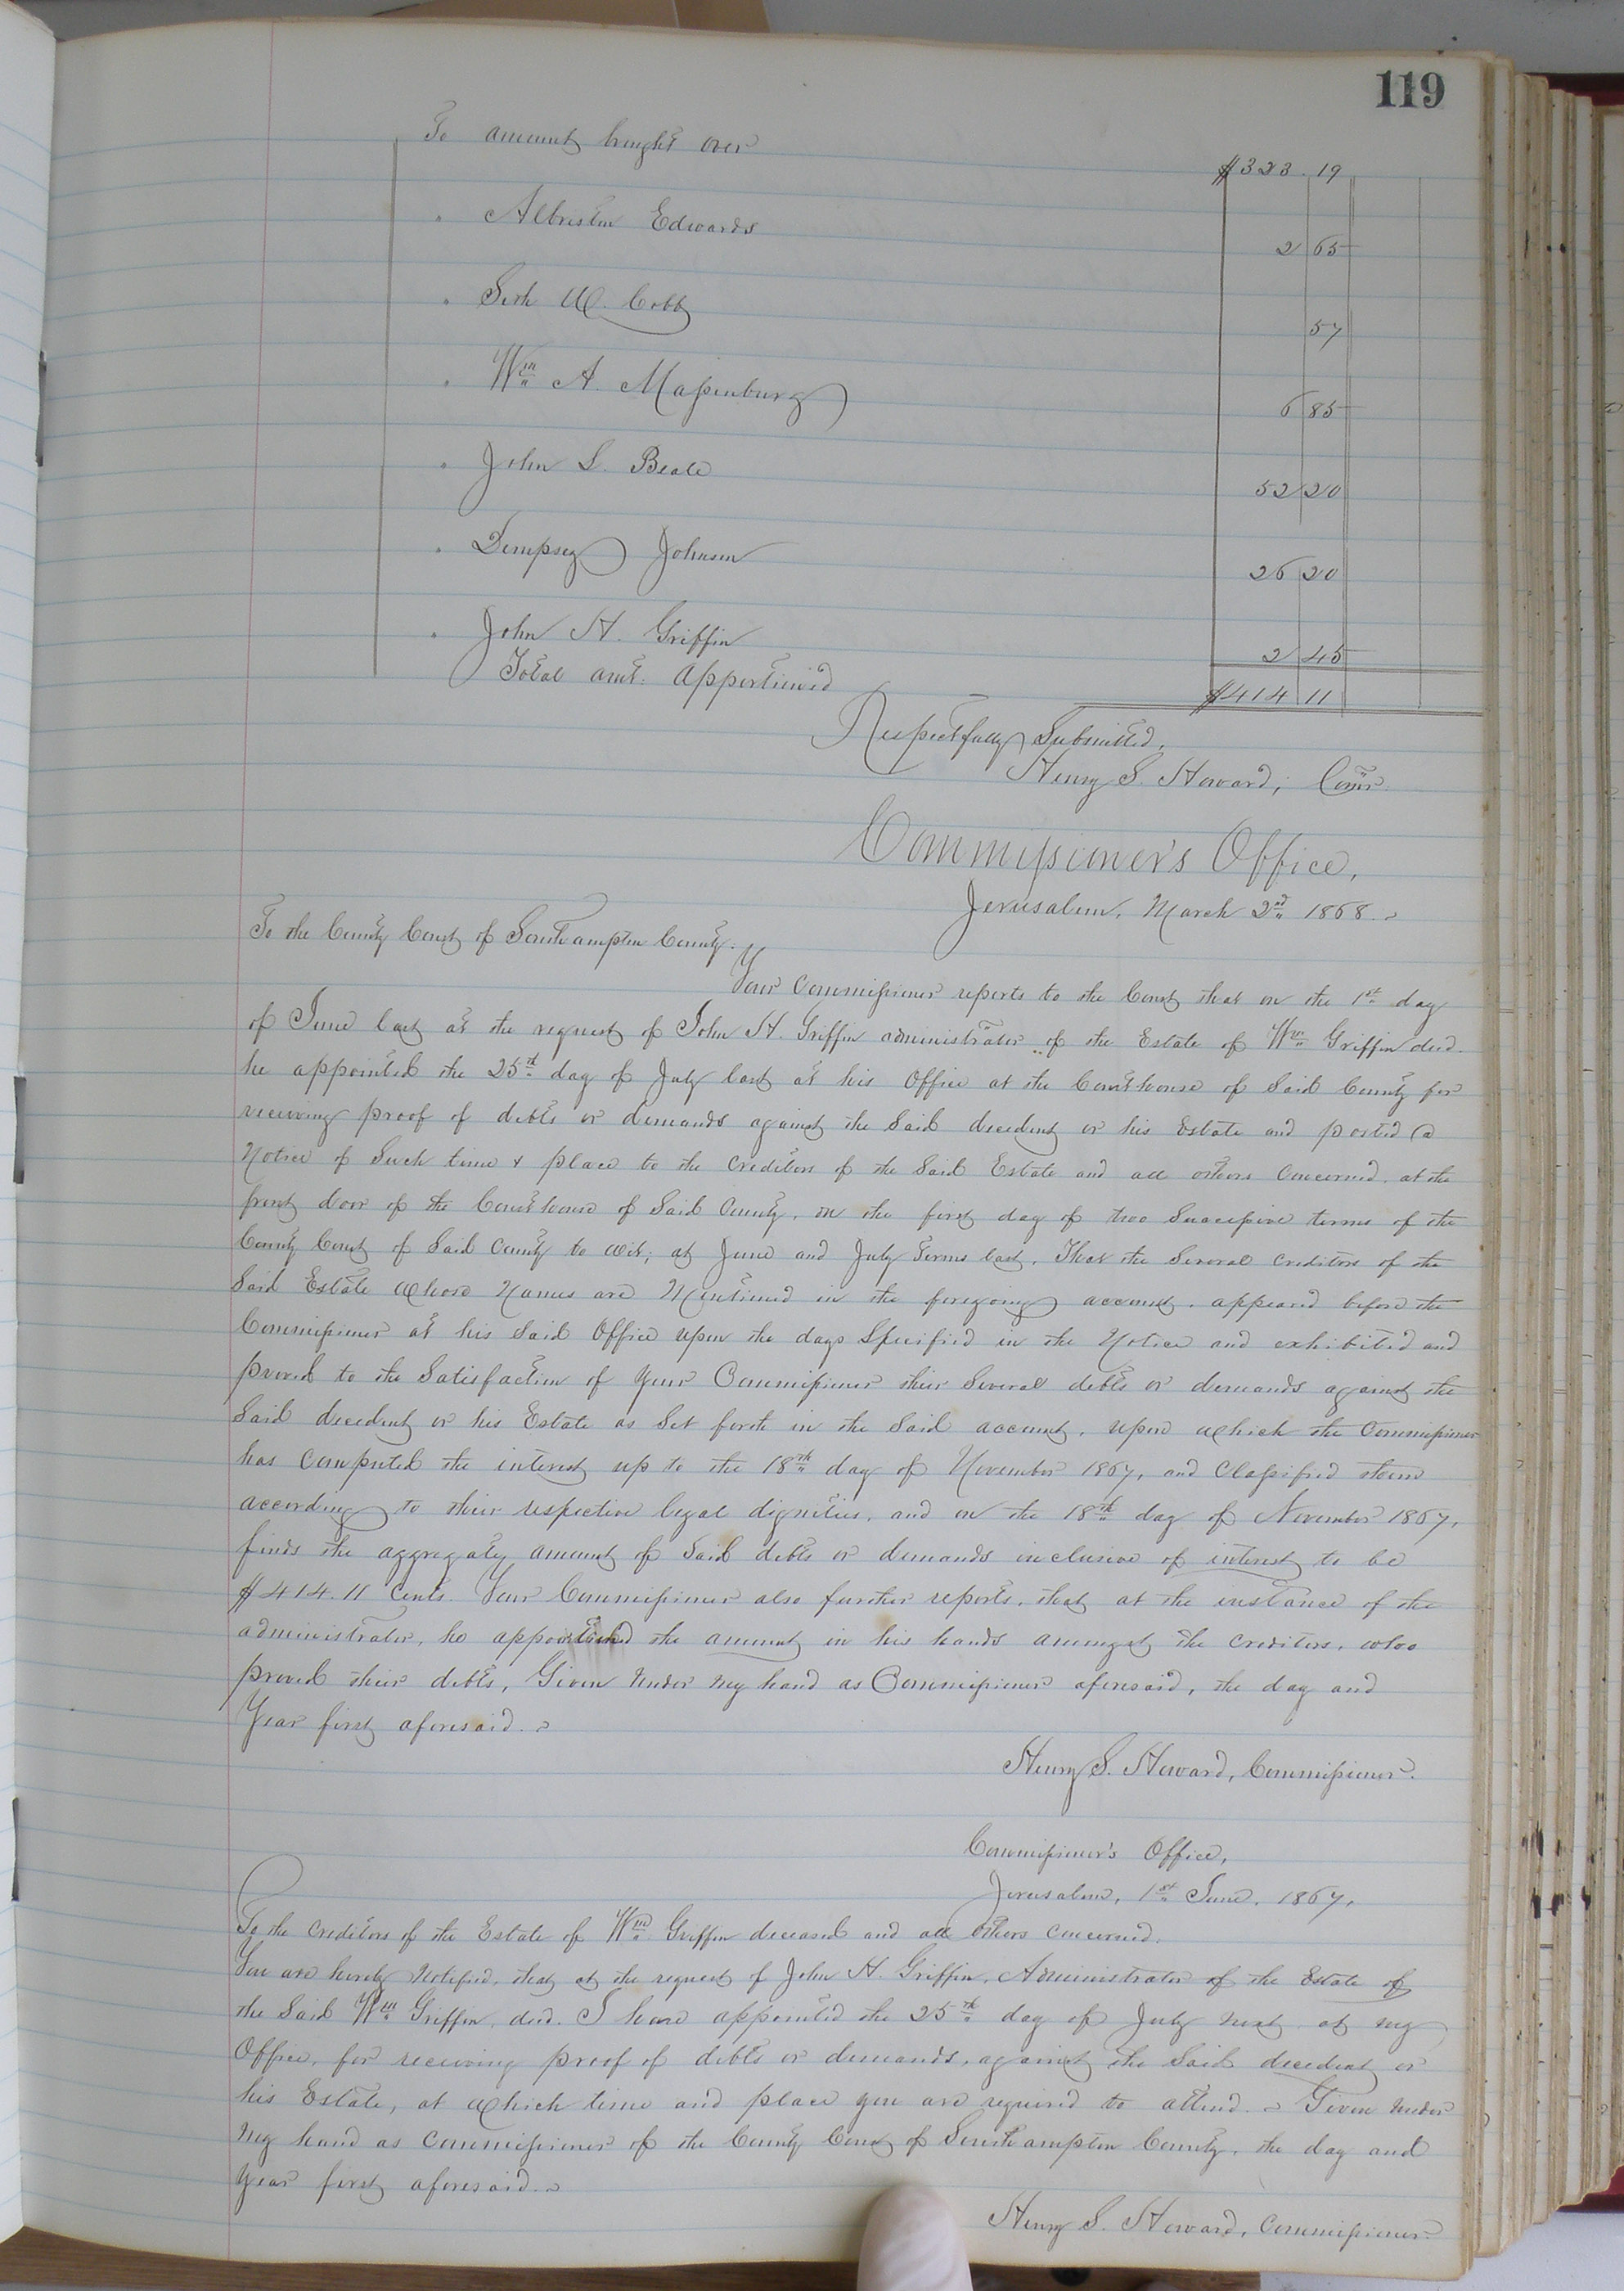 119
To amount brought over $323.19
" Albriston Edwards 2 65
" Seth W. Cobb 57
" Wm A. Massenburg 6 85
" John L. Beale 52 20
" Dempsey Johnson 26 20
" John H. Griffin 2 45
Total amt. apportioned $414 11
Respectfully Submitted,
Henry S. Howard, Comr.
Commissioner's Office,
Jerusalem, March 2nd 1868.
To the County Court of Southampton County.
Your Commissioner reports to the Court that on the 1st day
of June last at the request of John H. Griffin administrator of the Estate of Wm Griffin decd.
he appointed the 25th day of July last at his Office at the Courthouse of Said County for
receiving proof of debts or demands against the Said decedent or his Estate and posted a
Notice of Such time & place to the Creditors of the Said Estate and all others Concerned, at the
front door of the Courthouse of Said County, on the first day of two Successive terms of the
County Court of Said County to wit; at June and July Terms last, That the Several Creditors of the
Said Estate whose Names are Mentioned in the foregoing account, appeared before the
Commissioner at his Said Office upon the days Specified in the Notice and exhibited and
proved to the Satisfaction of Your Commissioner their Several debts or demands against the
Said decedent or his Estate as Set forth in the Said account, upon which the Commissioner
has Computed the interest up to the 18th day of November 1867, and Classified them
according to their respective legal dignities, and on the 18th day of November 1867,
finds the aggregate amount of Said debts or demands inclusive of interest to be
$414.11 Cents. Your Commissioner also further reports, that at the instance of the
administrator, he apportioned the amount in his hands amongst the Creditors, who
proved their debts, Given under my hand as Commissioner aforesaid, the day and
Year first aforesaid.
Henry S. Howard, Commissioner.
Commissioner's Office,
Jerusalem, 1st June, 1867,
To the Creditors of the Estate of Wm Griffin deceased and all others Concerned.
You are hereby Notified, that at the request of John H. Griffin, Administrator of the Estate of
the Said Wm Griffin, decd. I have appointed the 25th day of July next at my
Office, for receiving proof of debts or demands, against the Said decedent or
his Estate, at which time and place you are required to attend. Given under
my hand as Commissioner of the County Court of Southampton County, the day and
Year first aforesaid.
Henry S. Howard, Commissioner.